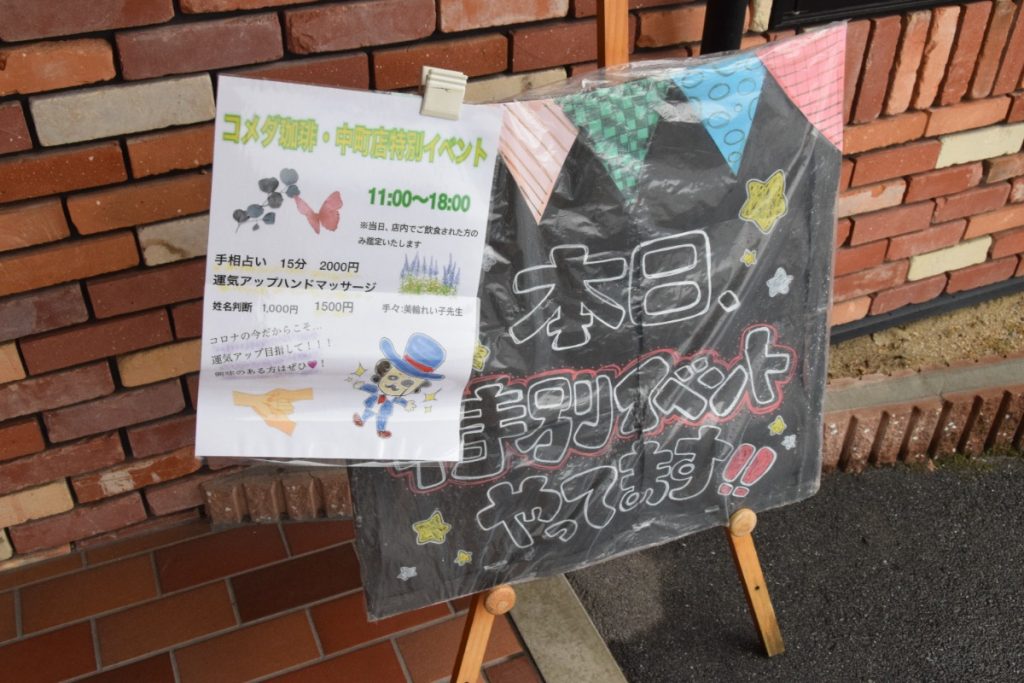 コメダ珈琲・中町店特別イベント
11:00〜18:00
※当日、店内でご飲食された方の
み鑑定いたします
手相占い　15分　2000円
運気アップハンドマッサージ
姓名判断　1,000円　1500円　手々:美輪れい子先生
コロナの今だからこそ…
運気アップ目指して！！！
興味のある方はぜひ♥！
本日、
特別イベント
やってます!!